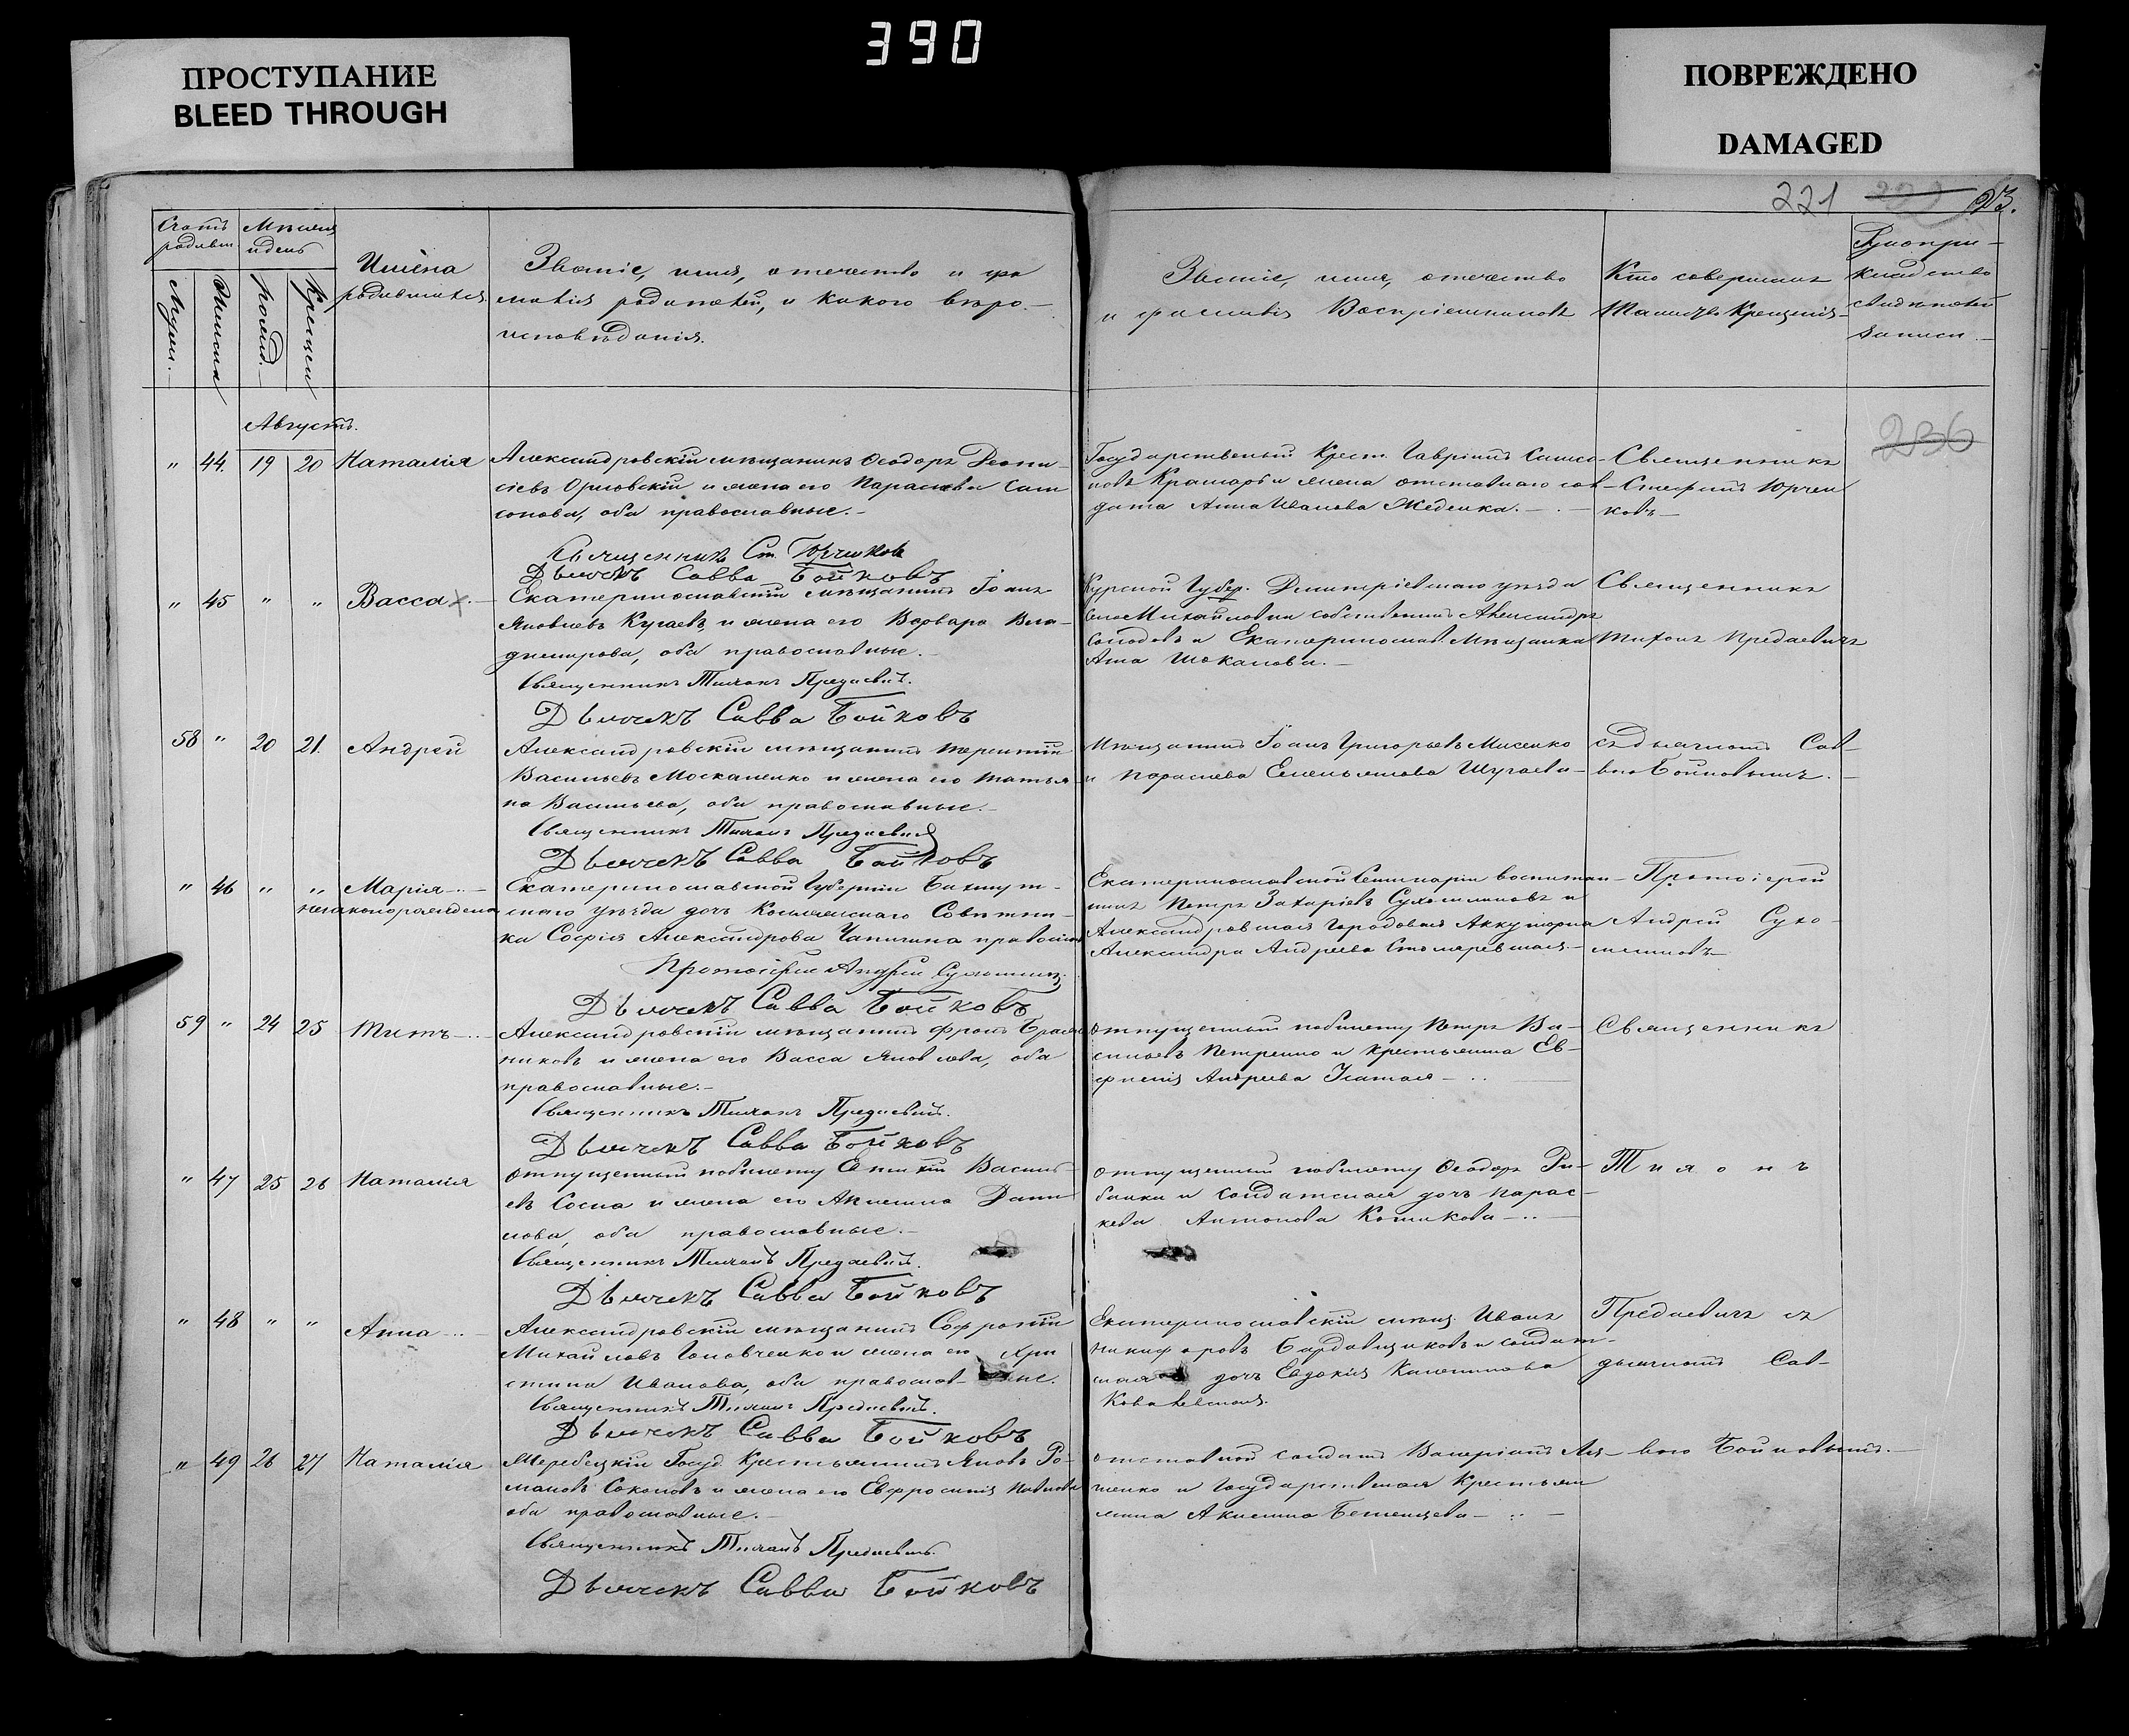 390
ПРОСТУПАНИЕ
BLEED THROUGH
ПОВРЕЖДЕНО
DAMAGED
221
23.
Счетъ родивш.
Мѣсяцъ и день
Имена родившихся
Званіе, имя, отечество и фа
милія родителей, и какого вѣро-
исповѣданія.
Званіе, имя, отечество
и фамилія Воспріемниковъ
Кто совершалъ
Таинство Крещенія
Рукопри-
кладство
свидѣтелей
записи.
Августъ.
236
" 44. 19 20 Наталія
Александровскій мѣщанинъ Ѳеодоръ Леонт
іевъ Орловскій и жена его Параскева Сам
сонова, оба православные.
Священникъ Ст. Юрченковъ
Дьячекъ Савва Бойковъ
Государственый Крест. Гавріилъ Самсо-
новъ Крамарь и жена отставнаго сол-
дата Анна Иванова Жеденка.
Священникъ
Стефанъ Юрчен
ковъ
" 45 " " Васса
Екатеринославскій мѣщанинъ Іоанъ
Яковлевъ Кугаевъ, и жена его Варвара Вла-
димирова, оба православные.
Священникъ Тихонъ Предаевичъ.
Дьячекъ Савва Бойковъ
Курской Губер. Димитріевскаго уѣзда
села Михайловки собственникъ Александръ
Солодовъ и Екатеринослав. Мѣщанка
Анна Шокалова.
Священникъ
Тихонъ Предаевичъ
58 " 20 21. Андрей
Александровскій мѣщанинъ Терентій
Васильевъ Москаленко и жена его Татья-
на Васильева, оба православные.
Священникъ Тихонъ Предаевичъ
Дьячекъ Савва Бойковъ
Мѣщанинъ Іоанъ Григорьевъ Мисенко
и Параскева Емельянова Шугаева
съ дьячкомъ Сав-
вою Бойковымъ.
" 46 " " Марія
незаконорожденая
Екатеринославской Губерніи Бахмут-
скаго уѣзда дочь Колежскаго Совѣтни-
ка Софія Александрова Чапигина правосл.
Протоіерей Андрей Сухомлиновъ
Дьячекъ Савва Бойковъ
Екатеринославской Семинаріи воспитан-
никъ Петръ Захаріевъ Сухомлиновъ и
Александровская Городовая Аккушорка
Александра Андреева Столяревская
Протоіерей
Андрей Сухо-
млиновъ
59 " 24 25 Титъ
Александровскій мѣщанинъ Фролъ
никовъ и жена его Васса Яковлева, оба
православные.
Священникъ Тихонъ Предаевичъ.
Дьячекъ Савва Бойковъ
отпущенный побилету Петръ Ва-
сильевъ Петренко и крестьянка Ев-
фимія Андреева Усатая
Священникъ
" 47 25 26 Наталія
отпущенный побилету Василь-
евъ Сосна и жена его Акилина Дани
лова, оба православные.
Священникъ Тихонъ Предаевичъ.
Дьячекъ Савва Бойковъ
отпущенный побилету Ѳеодоръ Ри-
балка и солдатская дочь Парас-
кева Антонова Котикова
Тихонъ
" 48 " " Анна
Александровскій мѣщанинъ Софроній
Михайловъ Головченко и жена его Хри
стина Иванова, оба православ- ные.
Священникъ Тихонъ Предаевичъ.
Дьячекъ Савва Бойковъ
Екатеринославскій мѣщ. Иванъ
Никифоровъ Бардавщиковъ и солдат-
ская дочь Евдокія Калинникова
Ковалевская.
Предаевичъ съ
дьячкомъ Сав-
" 49 26 27 Наталія
Жеребецкій Госуд. Крестьянинъ Яковъ Ро-
мановъ Соколовъ и жена его Евфросинія Павлова
оба православные.
Священникъ Тихонъ Предаевичъ.
Дьячекъ Савва Бойковъ
отставной солдатъ Валеріанъ Ля-
шенко и Государственая Крестьян
янка Акилина Беленцева
вою Бойковымъ.